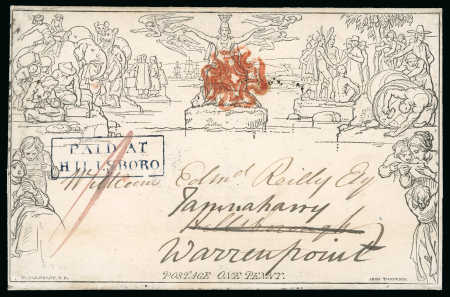 PAID AT
HILLSBORO
William Edmd Reilly Esq
Tamnaharry
Hillsborough
Warrenpoint
POSTAGE ONE PENNY.
W. MULREADY, R.A.
JOHN THOMPSON.